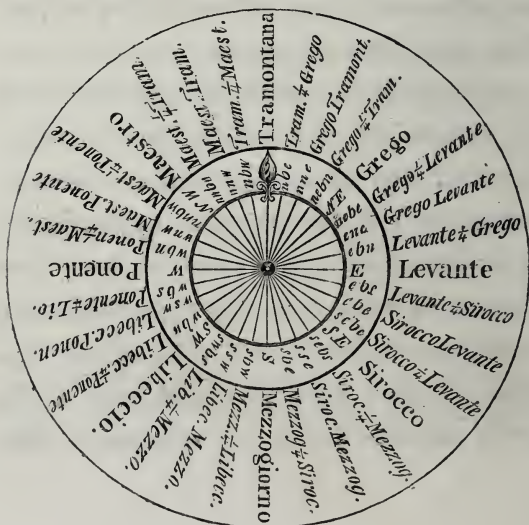 Tramontana
Tram. ¼ Grego
Grego Tramont.
Grego ¼ Tram.
Grego
Grego ¼ Levante
Grego Levante
Levante ¼ Grego
Levante
Levante ¼ Sirocco
Sirocco Levante
Sirocco ¼ Levante
Sirocco
Siroc. ¼ Mezzog.
Siroc. Mezzog.
Mezzog ¼ Siroc.
Mezzogiorno
Mezz. ¼ Libecc.
Libec. Mezzo.
Lib ¼ Mezzo.
Libeccio.
Libecc. ¼ Ponente
Libecc. Ponen.
Ponente ¼ Lio.
Ponente
Ponen ¼ Maest.
Maest. Ponente
Maest ¼ Ponente
Maestro
Maest. ¼ Tram.
Maest. Tram.
Tram. ¼ Maest.
nbe
nne
nebn
NE
nebe
ene
ebn
E
ebs
sebe
SE
sebs
sse
sbe
S
sbw
ssw
swbs
SW
wsw
wbs
W
wbn
wnw
NW
nnw
nbw